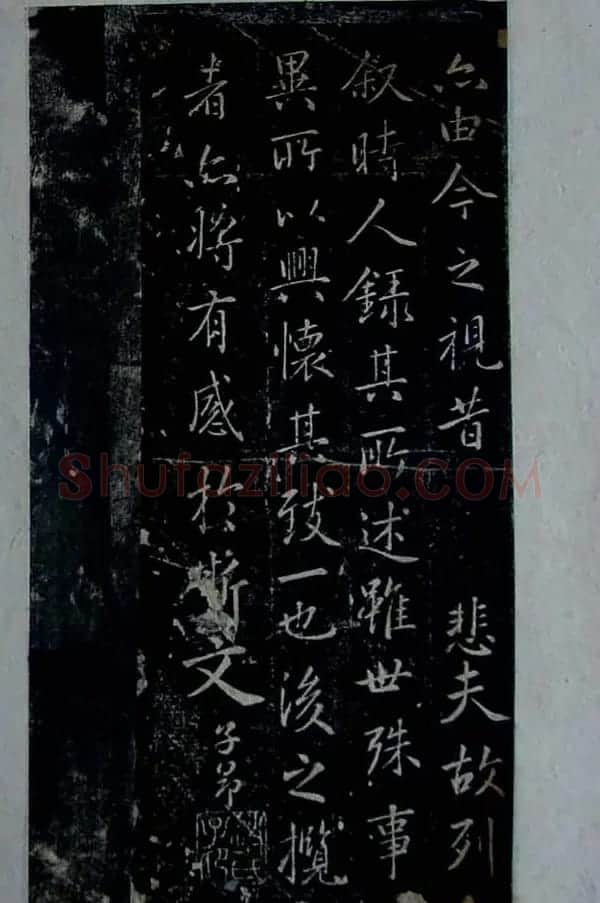 亦由今之視昔 悲夫故列
叙時人錄其所述雖世殊事
異所以興懷其致一也後之攬
者亦將有感於斯文 子昂
Shufaziliao.COM